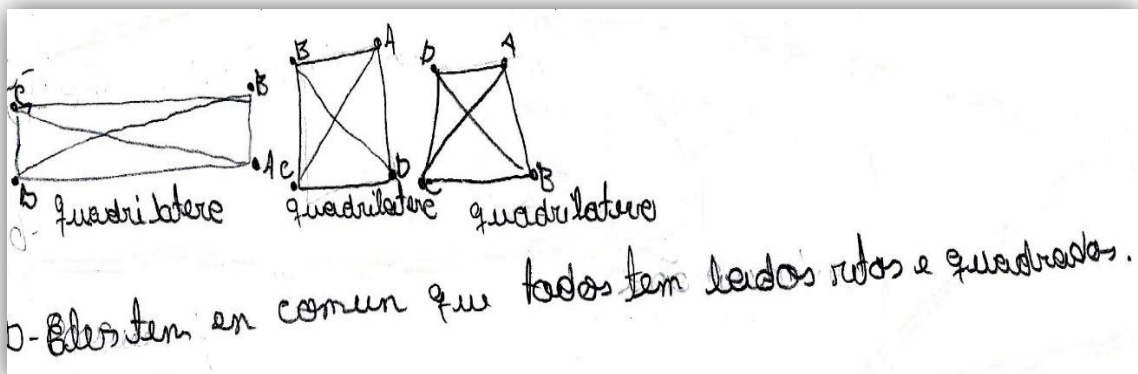 B A D A
C B
D A C D C B
quadrilatere quadrilatere quadrilatero
b-Eles tem en comun que todos tem lados retos e quadrados.